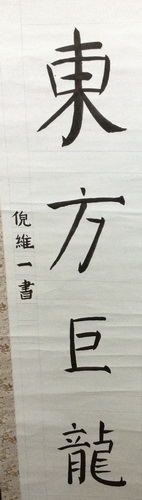 東方巨龍
倪維一書